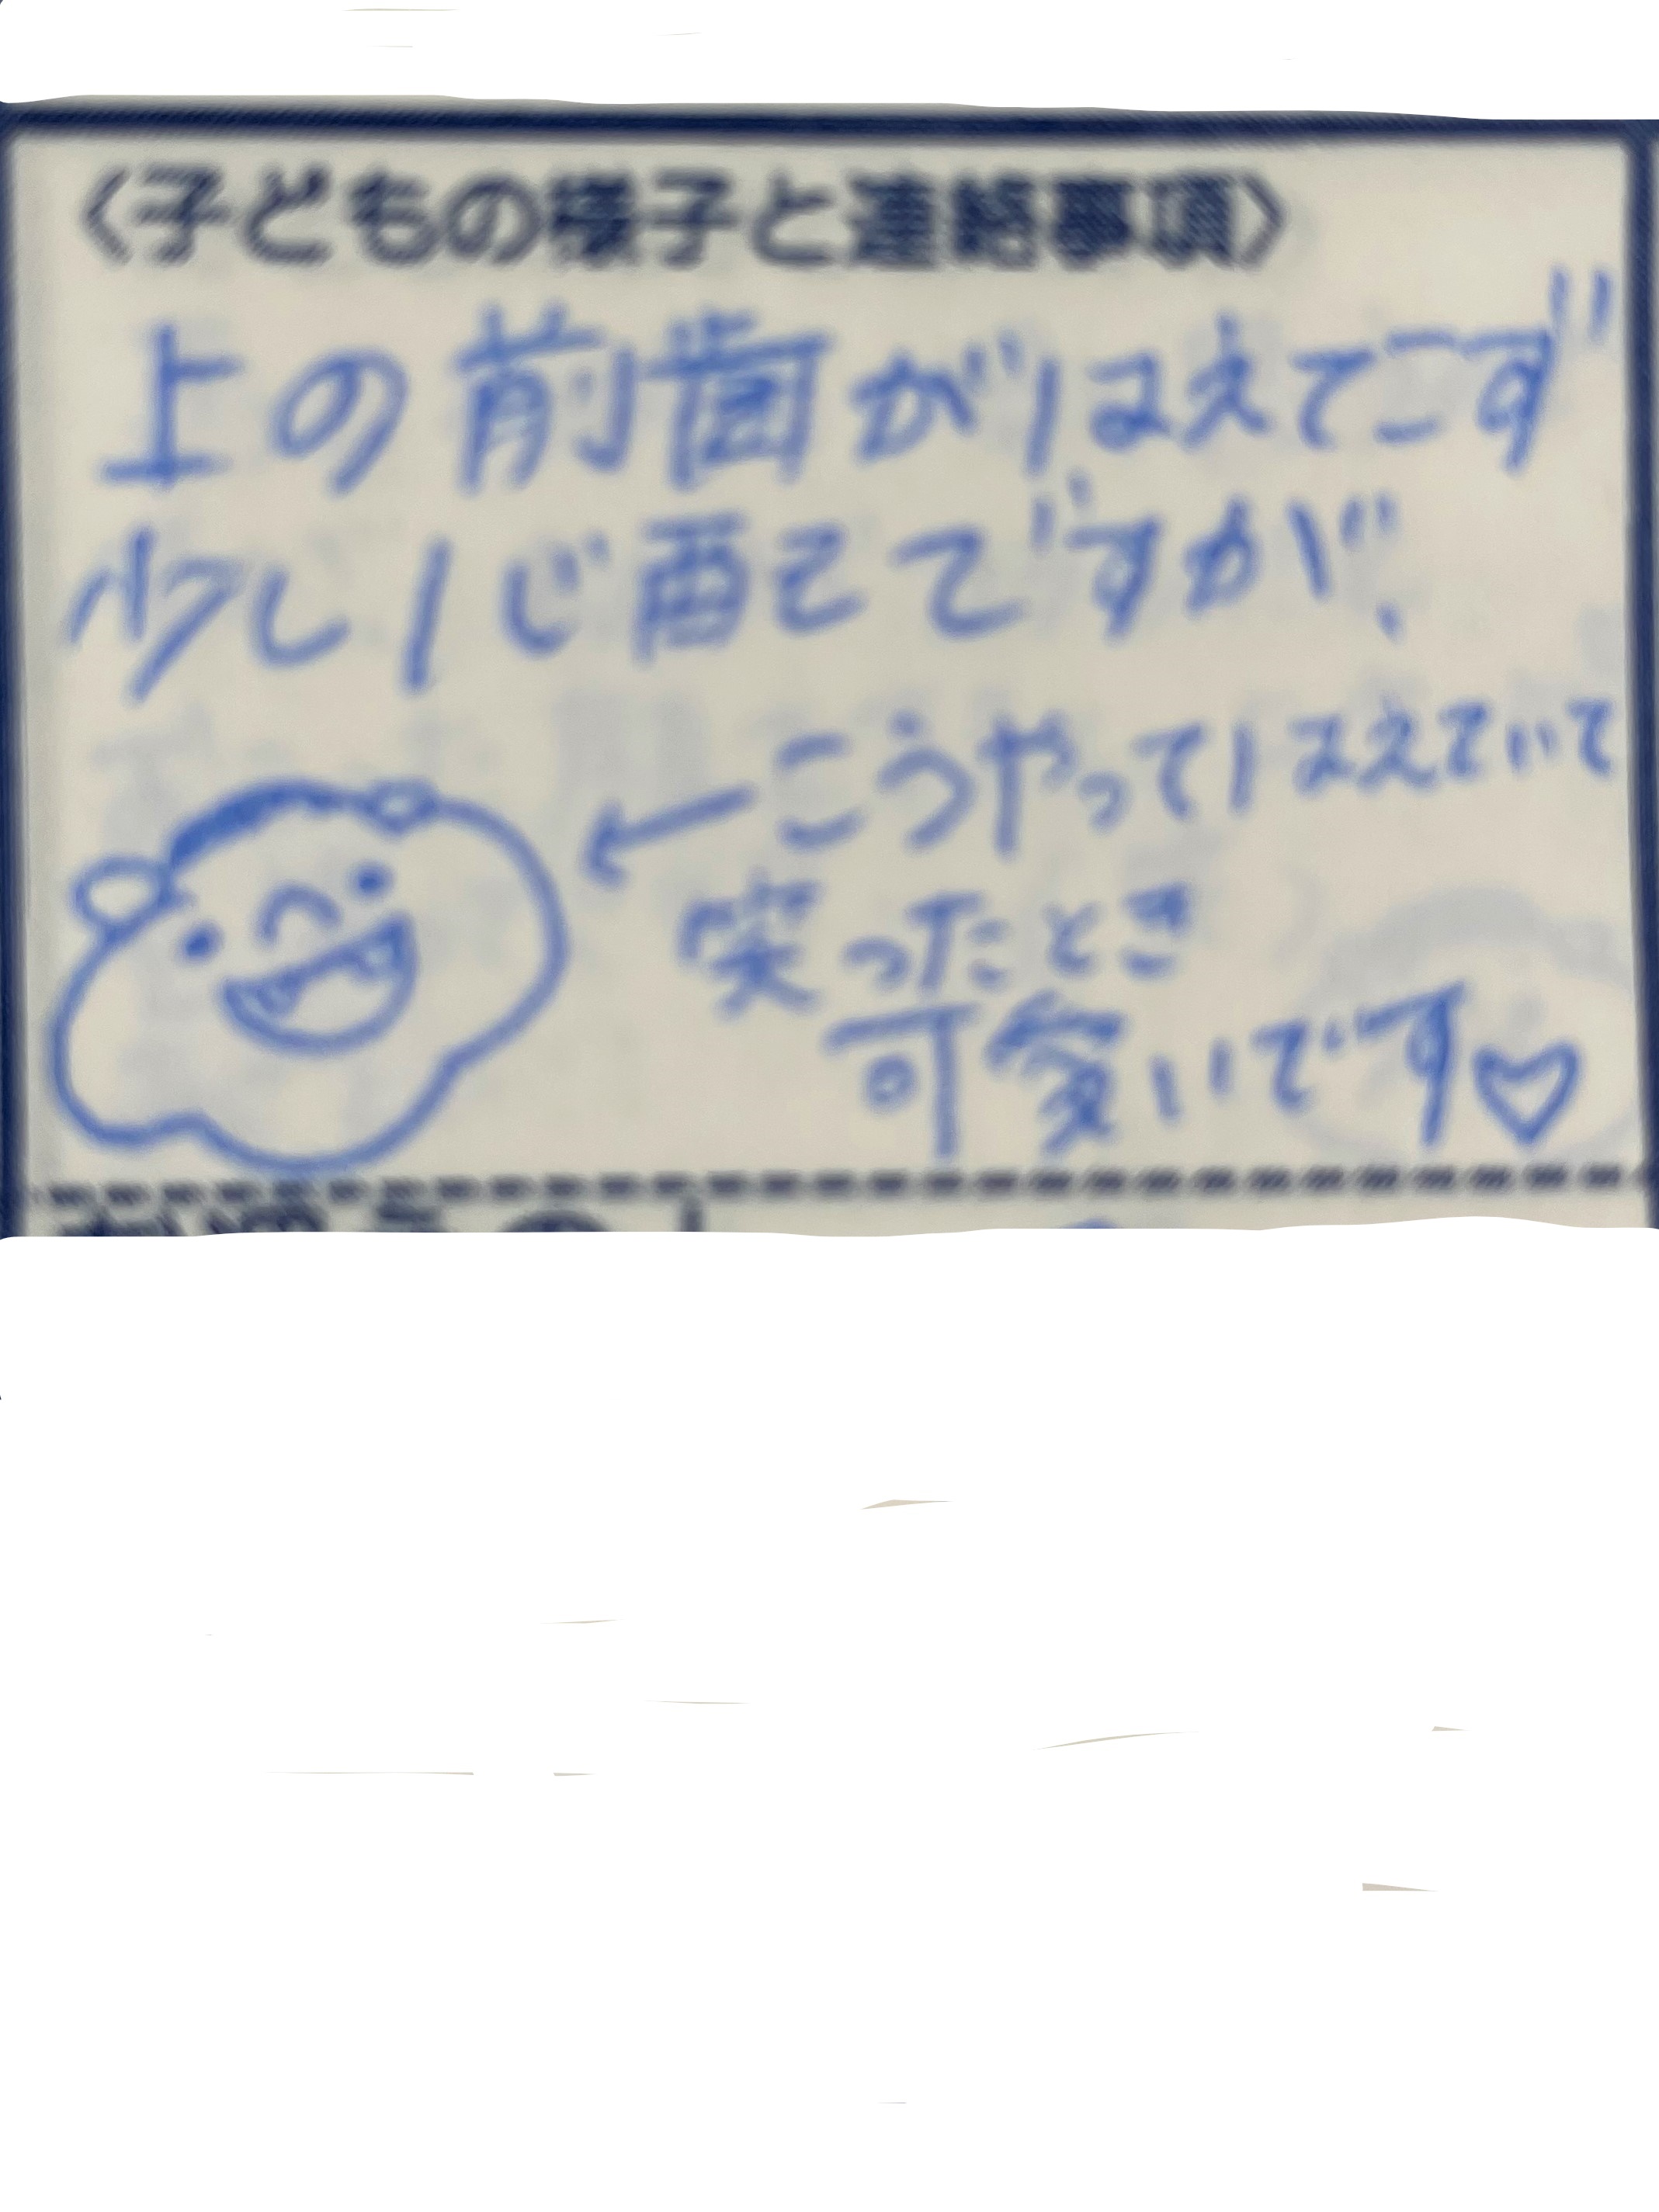 〈子どもの様子と連絡事項〉
上の前歯がはえてこず
少し心配ですが、
←こうやってはえていて
笑ったとき
可愛いです♡